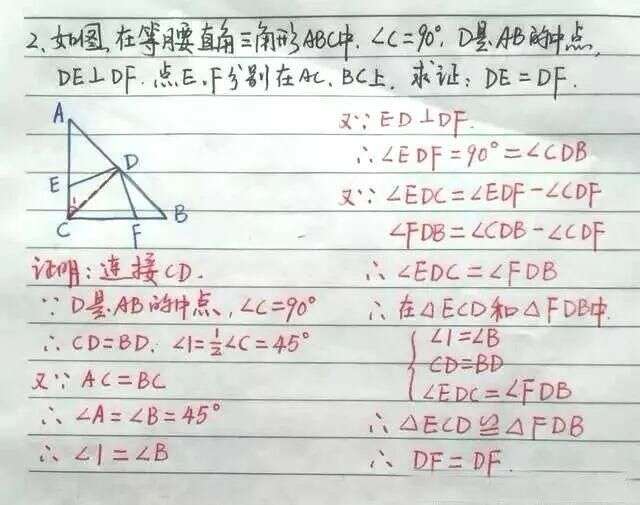 2、如图,在等腰直角三角形ABC中,∠C=90°,D是AB的中点,
DE⊥DF.点E、F分别在AC、BC上.求证:DE=DF.
A
D
E
1
C
F
B
证明:连接CD.
∵D是AB的中点,∠C=90°
∴CD=BD.∠1=½∠C=45°
又∵AC=BC
∴∠A=∠B=45°
∴∠1=∠B
又∵ED⊥DF.
∴∠EDF=90°=∠CDB
又∵∠EDC=∠EDF-∠CDF
∠FDB=∠CDB-∠CDF
∴∠EDC=∠FDB
∴在△ECD和△FDB中.
∠1=∠B
CD=BD
∠EDC=∠FDB
∴△ECD≌△FDB
∴DF=DF.